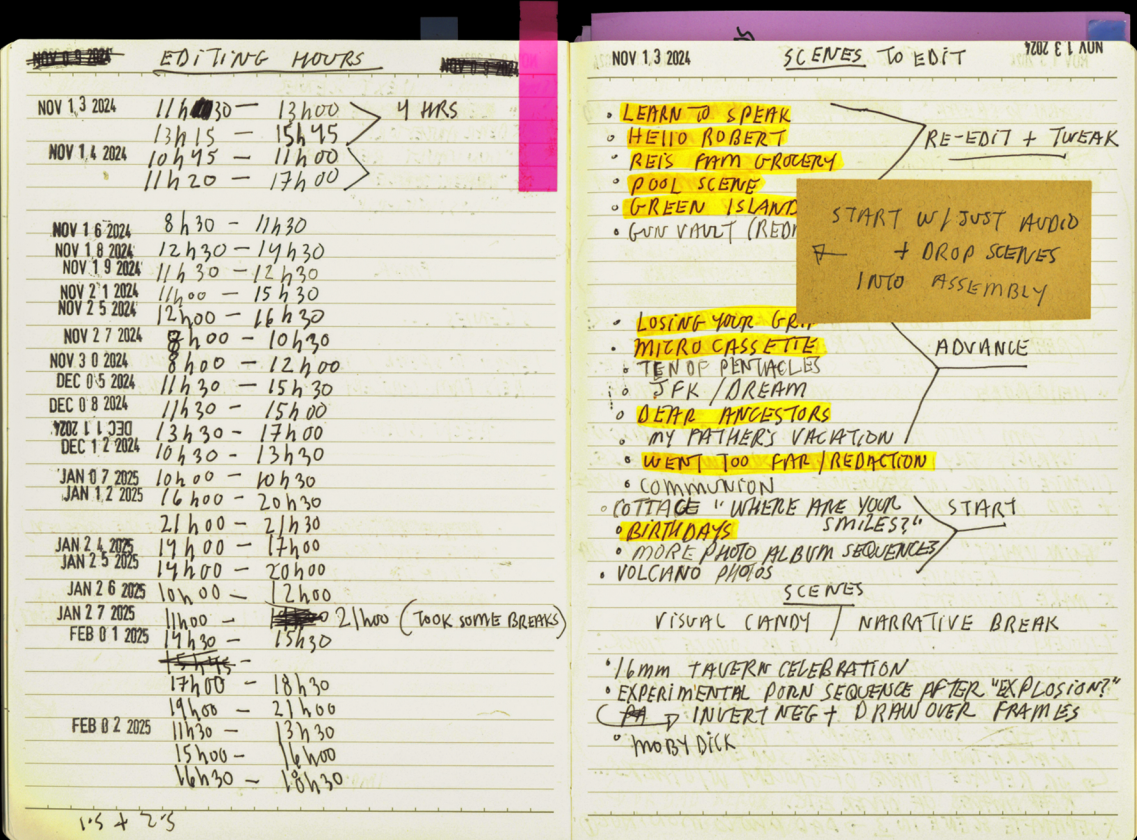 NOV 0 9 2024
EDITING HOURS
NOV 1 3 2024 11h30 — 13h00 4 HRS
13h15 — 15h45
NOV 1 4 2024 10h45 — 11h00
11h20 — 17h00
NOV 1 6 2024 8h30 — 11h30
NOV 1 8 2024 12h30 — 14h30
NOV 1 9 2024 11h30 — 12h30
NOV 2 1 2024 11h00 — 15h30
NOV 2 5 2024 12h00 — 16h30
NOV 2 7 2024 8h00 — 10h30
NOV 3 0 2024 8h00 — 12h00
DEC 0 5 2024 11h30 — 15h30
DEC 0 8 2024 11h30 — 15h00
DEC 1 1 2024 13h30 — 17h00
DEC 1 2 2024 10h30 — 13h30
JAN 0 7 2025 10h00 — 10h30
JAN 1 2 2025 16h00 — 20h30
21h00 — 21h30
JAN 2 4 2025 14h00 — 17h00
JAN 2 5 2025 14h00 — 20h00
JAN 2 6 2025 10h00 — 12h00
JAN 2 7 2025 11h00 — 21h00 (TOOK SOME BREAKS)
FEB 0 1 2025 14h30 — 15h30
15h45 —
17h00 — 18h30
19h00 — 21h00
FEB 0 2 2025 11h30 — 13h30
15h00 — 16h00
16h30 — 18h30
NOV 1 3 2024 SCENES TO EDIT NOV 1 3 2024
• LEARN TO SPEAK
• HELLO ROBERT
• REIS FAM GROCERY
• POOL SCENE
• GREEN ISLAND
• GUN VAULT
RE-EDIT + TWEAK
START W/ JUST AUDIO
+ DROP SCENES
INTO ASSEMBLY
• LOSING YOUR
• MICROCASSETTE
• TEN OF PENTACLES
• JFK / DREAM
• DEAR ANCESTORS
• MY FATHER'S VACATION
• WENT TOO FAR / REDACTION
• COMMUNION
ADVANCE
• COTTAGE "WHERE ARE YOUR
SMILES?"
• BIRTHDAYS
• MORE PHOTO ALBUM SEQUENCES
• VOLCANO PHOTOS
START
SCENES
VISUAL CANDY / NARRATIVE BREAK
• 16mm TAVERN CELEBRATION
• EXPERIMENTAL PORN SEQUENCE AFTER "EXPLOSION?"
INVERT NEG + DRAW OVER FRAMES
• MOBY DICK